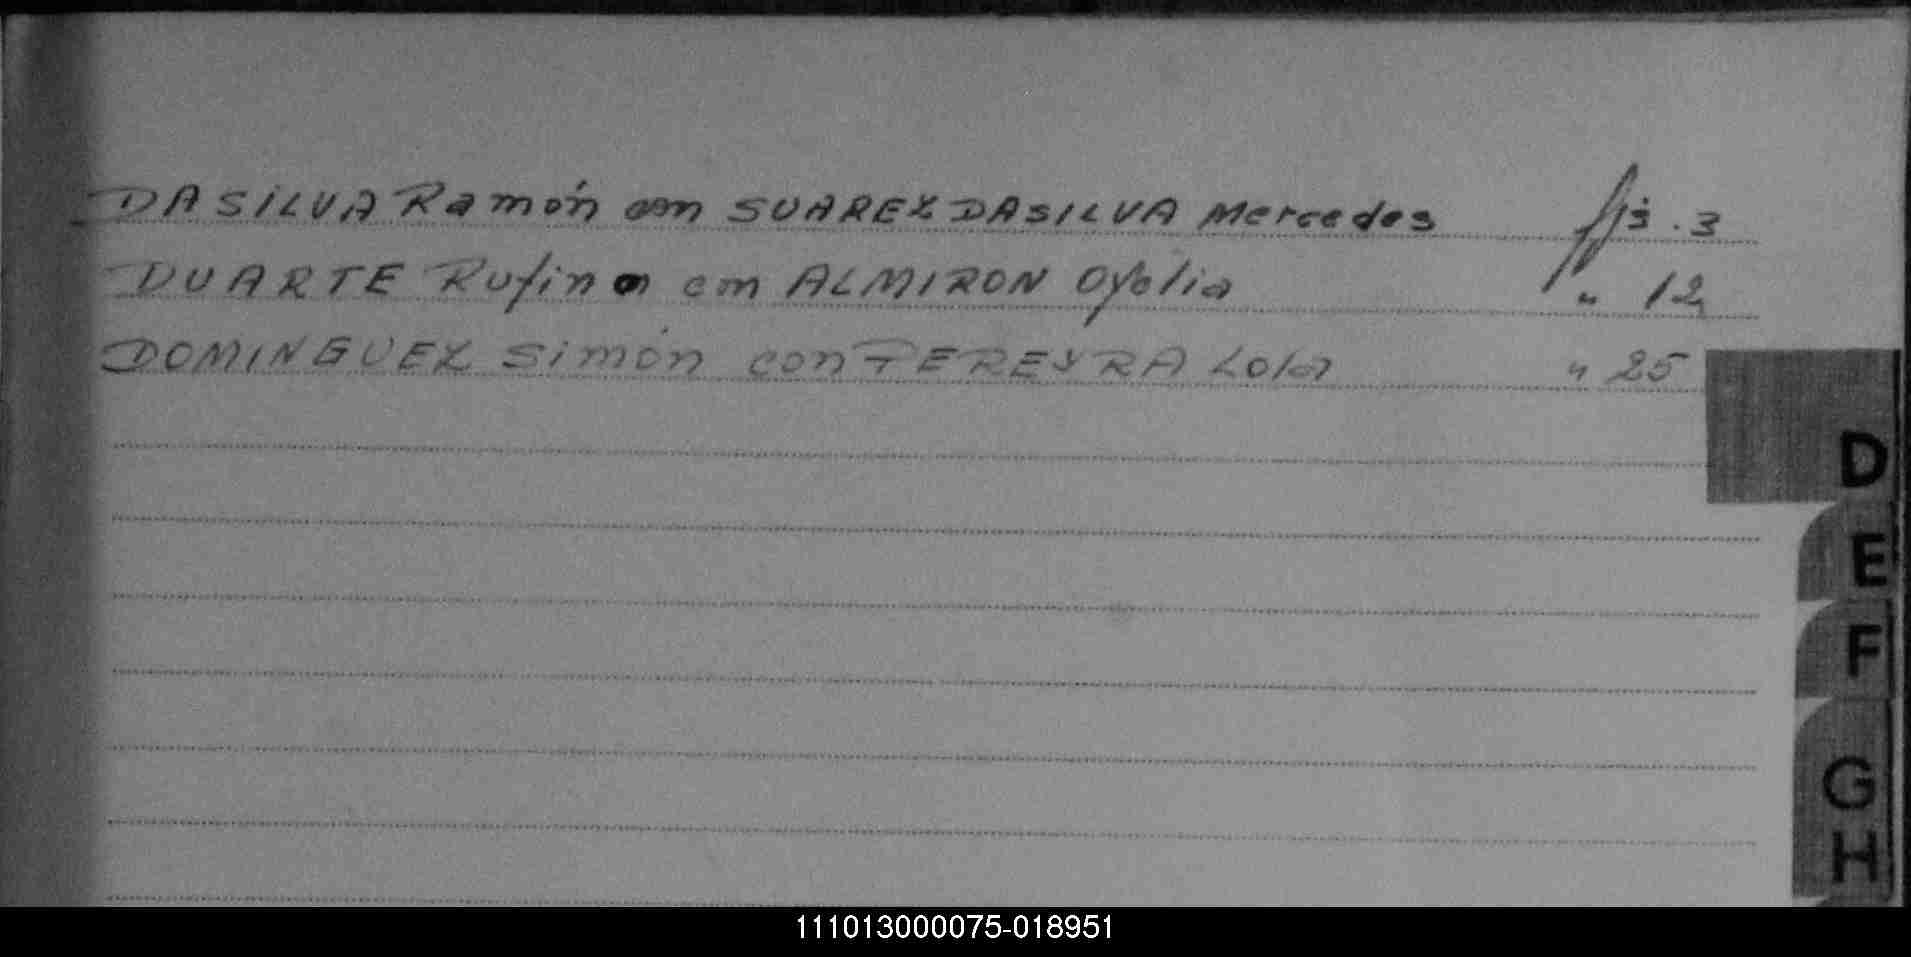 DASILVA Ramón con SUAREZ DASILVA Mercedes fjs. 3
DUARTE Rufino con ALMIRON Ofelia " 12
DOMINGUEZ Simón con PEREYRA Lola " 25
D
E
F
G
H
111013000075-018951